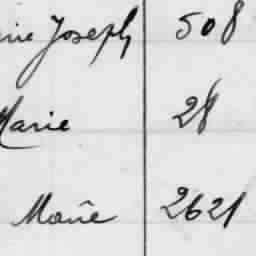 Joseph 508
Marie 28
Marie 2621